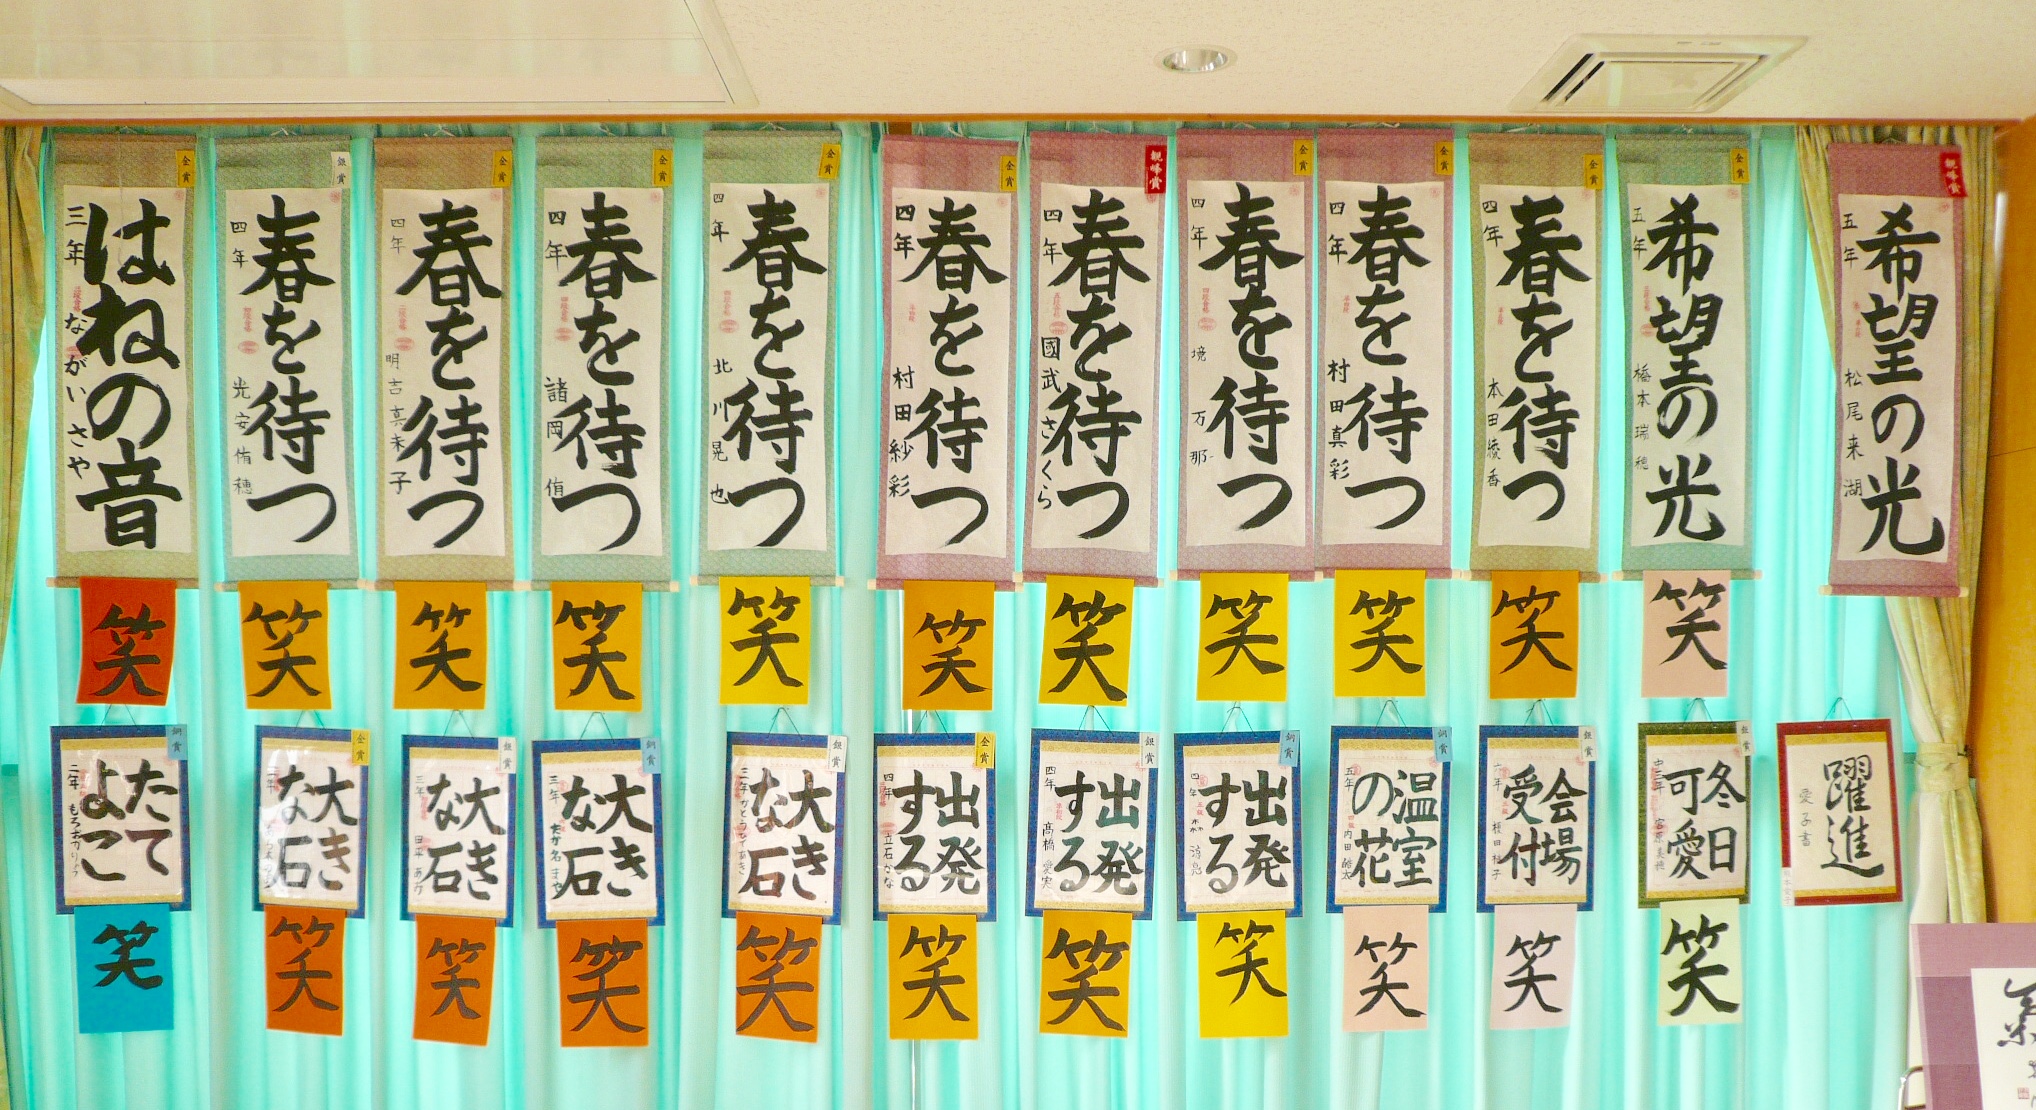 金賞
はねの音
三年 ながいさや
銀賞
春を待つ
四年 光安侑穂
金賞
春を待つ
四年 明吉真未子
金賞
春を待つ
四年 諸岡侑
金賞
春を待つ
四年 北川晃也
金賞
春を待つ
四年 村田紗彩
観峰賞
春を待つ
四年 國武さくら
金賞
春を待つ
四年 境万那
金賞
春を待つ
四年 村田真彩
金賞
春を待つ
四年 本田綾香
金賞
希望の光
五年 橋本瑞穂
観峰賞
希望の光
五年 松尾来湖
笑
笑
笑
笑
笑
笑
笑
笑
笑
笑
笑
銅賞
たて
よこ
二年
金賞
大き
な石
二年
銀賞
大き
な石
三年
銅賞
大き
な石
三年
銀賞
大き
な石
三年
金賞
出発
する
四年 立石かな
銀賞
出発
する
四年 高橋愛実
銅賞
出発
する
四年
銅賞
温室
の花
五年 内田皓太
銀賞
会場
受付
六年
銀賞
冬日
可愛
中三年 宮原美穂
躍進
愛子書
笑
笑
笑
笑
笑
笑
笑
笑
笑
笑
笑